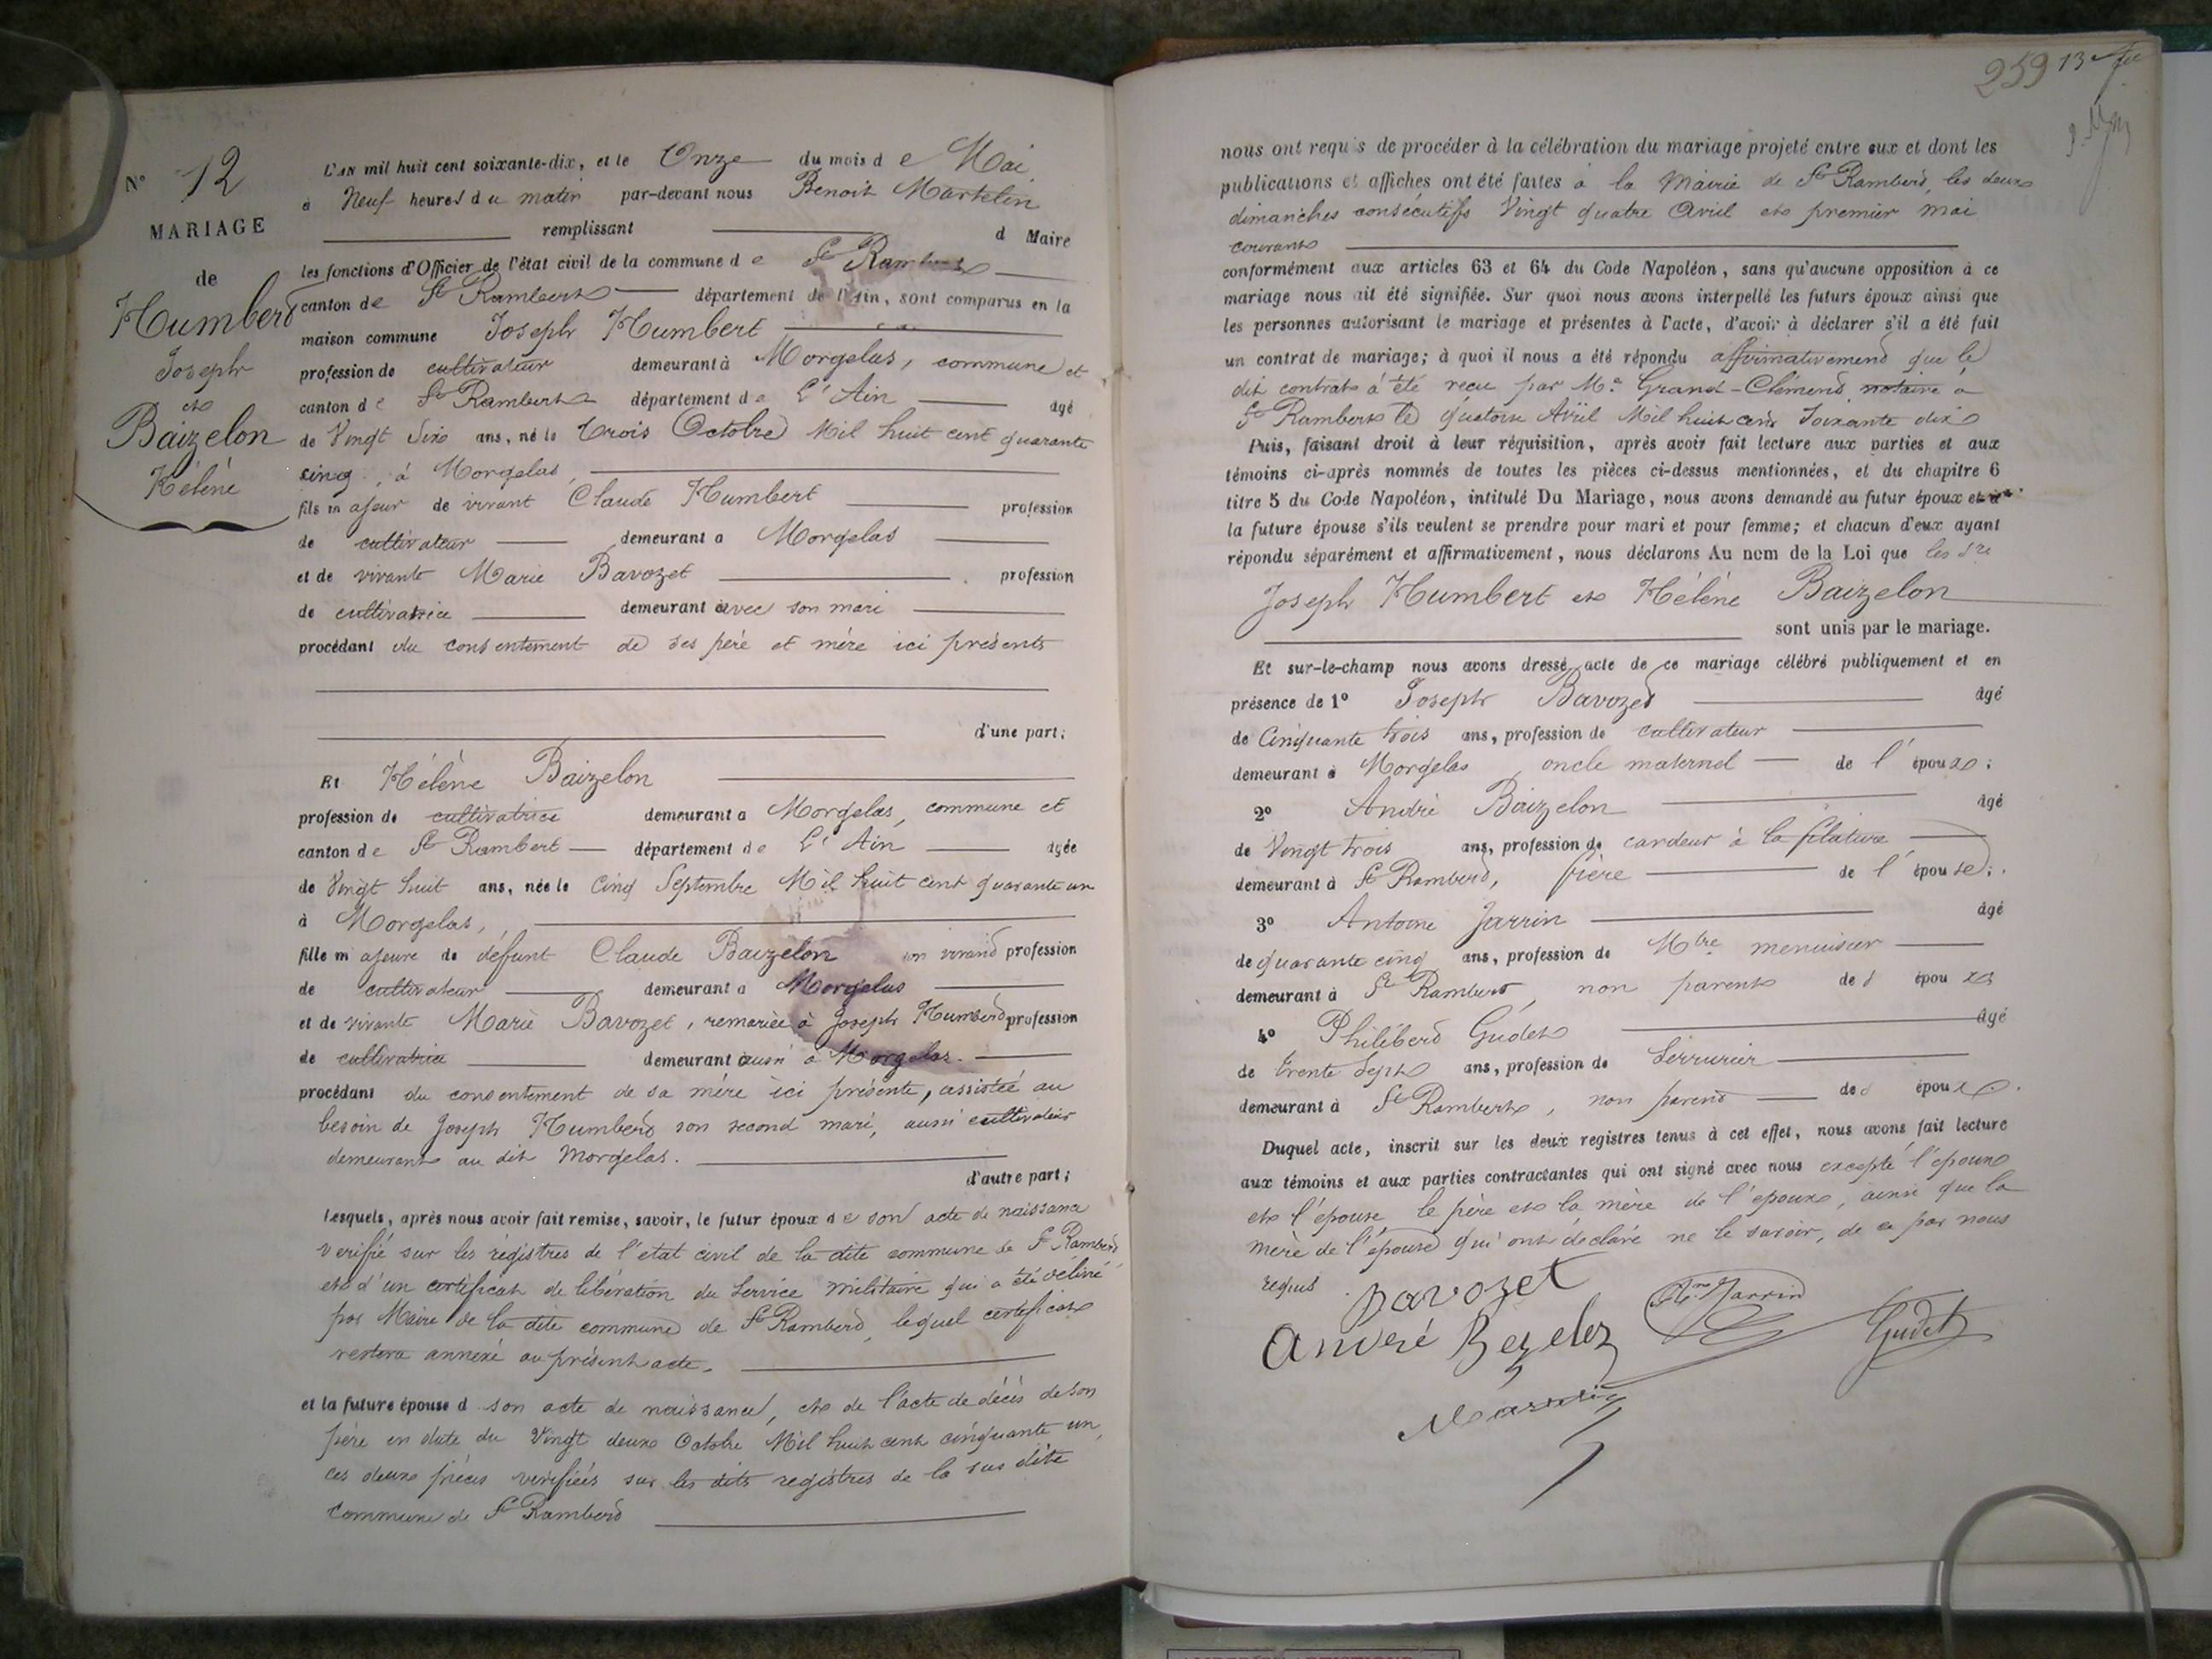 N° 12
MARIAGE
de
Humbert
Joseph
et
Baizelon
Hélène
L'AN mil huit cent soixante-dix, et le Onze du mois de Mai
à Neuf heures du matin par-devant nous Benoit Martelin
remplissant d Maire
les fonctions d'Officier de l'état civil de la commune de St Rambert
canton de St Rambert département de l'Ain, sont comparus en la
maison commune Joseph Humbert
profession de cultivateur demeurant à Morgelas, commune et
canton de St Rambert département de L'Ain âgé
de Vingt ans, né le trois Octobre Mil huit cent quarante
cinq, à Morgelas,
fils majeur de vivant Claude Humbert profession
de cultivateur demeurant à Morgelas
et de vivante Marie Bavozet profession
de cultivatrice demeurant avec son mari
procédant du consentement de ses père et mère ici présents
d'une part;
Et Hélène Baizelon
profession de cultivatrice demeurant a Morgelas, commune et
canton de St Rambert département de L'Ain âgée
de Vingt huit ans, née le Cinq Septembre Mil huit cent quarante un
à Morgelas,
fille majeure de défunt Claude Baizelon en vivant profession
de cultivateur demeurant a Morgelas
et de vivante Marie Bavozet, remariée à Joseph Humbert profession
de cultivatrice demeurant aussi à Morgelas.
procédant du consentement de sa mère ici présente, assistée au
besoin de Joseph Humbert son second mari, aussi cultivateur
demeurant au dit Morgelas.
d'autre part;
Lesquels, après nous avoir fait remise, savoir, le futur époux de son acte de naissance
verifié sur les régistres de l'état civil de la dite commune de St Rambert
et d'un certificat de libération du Service militaire qui a été délivré
par Maire de la dite commune de St Rambert, lequel certificat
restera annexé au présent acte.
et la future épouse d son acte de naissance, et de l'acte de décès de son
père en date du Vingt deux Octobre Mil huit cent cinquante un,
ces deux pièces verifiées sur les dits registres de la sus dite
commune de St Rambert
259 13
nous ont requis de procéder à la célébration du mariage projeté entre eux et dont les
publications et affiches ont été faites à la Mairie de St Rambert, les deux
dimanches consécutifs Vingt quatre Avril et premier mai
courant
conformément aux articles 63 et 64 du Code Napoléon, sans qu'aucune opposition à ce
mariage nous ait été signifiée. Sur quoi nous avons interpellé les futurs époux ainsi que
les personnes autorisant le mariage et présentes à l'acte, d'avoir à déclarer s'il a été fait
un contrat de mariage; à quoi il nous a été répondu affirmativement que le
dit contrat a été reçu par Me Grand-Clément notaire à
St Rambert le quatorze Avril Mil huit cent Soixante dix
Puis, faisant droit à leur réquisition, après avoir fait lecture aux parties et aux
témoins ci-après nommés de toutes les pièces ci-dessus mentionnées, et du chapitre 6
titre 5 du Code Napoléon, intitulé Du Mariage, nous avons demandé au futur époux et à
la future épouse s'ils veulent se prendre pour mari et pour femme; et chacun d'eux ayant
répondu séparément et affirmativement, nous déclarons Au nom de la Loi que les
Joseph Humbert et Hélène Baizelon
sont unis par le mariage.
Et sur-le-champ nous avons dressé acte de ce mariage célébré publiquement et en
présence de 1° Joseph Bavozet âgé
de Cinquante trois ans, profession de cultivateur
demeurant à Morgelas oncle maternel de l'époux;
2° André Baizelon âgé
de Vingt trois ans, profession de cardeur à la filature
demeurant à St Rambert, frère de l'épouse;
3° Antoine Jarrin âgé
de quarante cinq ans, profession de Mtre menuisier
demeurant à St Rambert, non parent des époux
4° Philibert Gudet âgé
de trente Sept ans, profession de Serrurier
demeurant à St Rambert, non parent des époux.
Duquel acte, inscrit sur les deux registres tenus à cet effet, nous avons fait lecture
aux témoins et aux parties contractantes qui ont signé avec nous excepté l'époux
et l'épouse le père et la mère de l'époux, ainsi que la
mère de l'épouse qui ont déclaré ne le savoir, de ce par nous
requis.
Bavozet
Jarrin
André Bezelon
Gudet